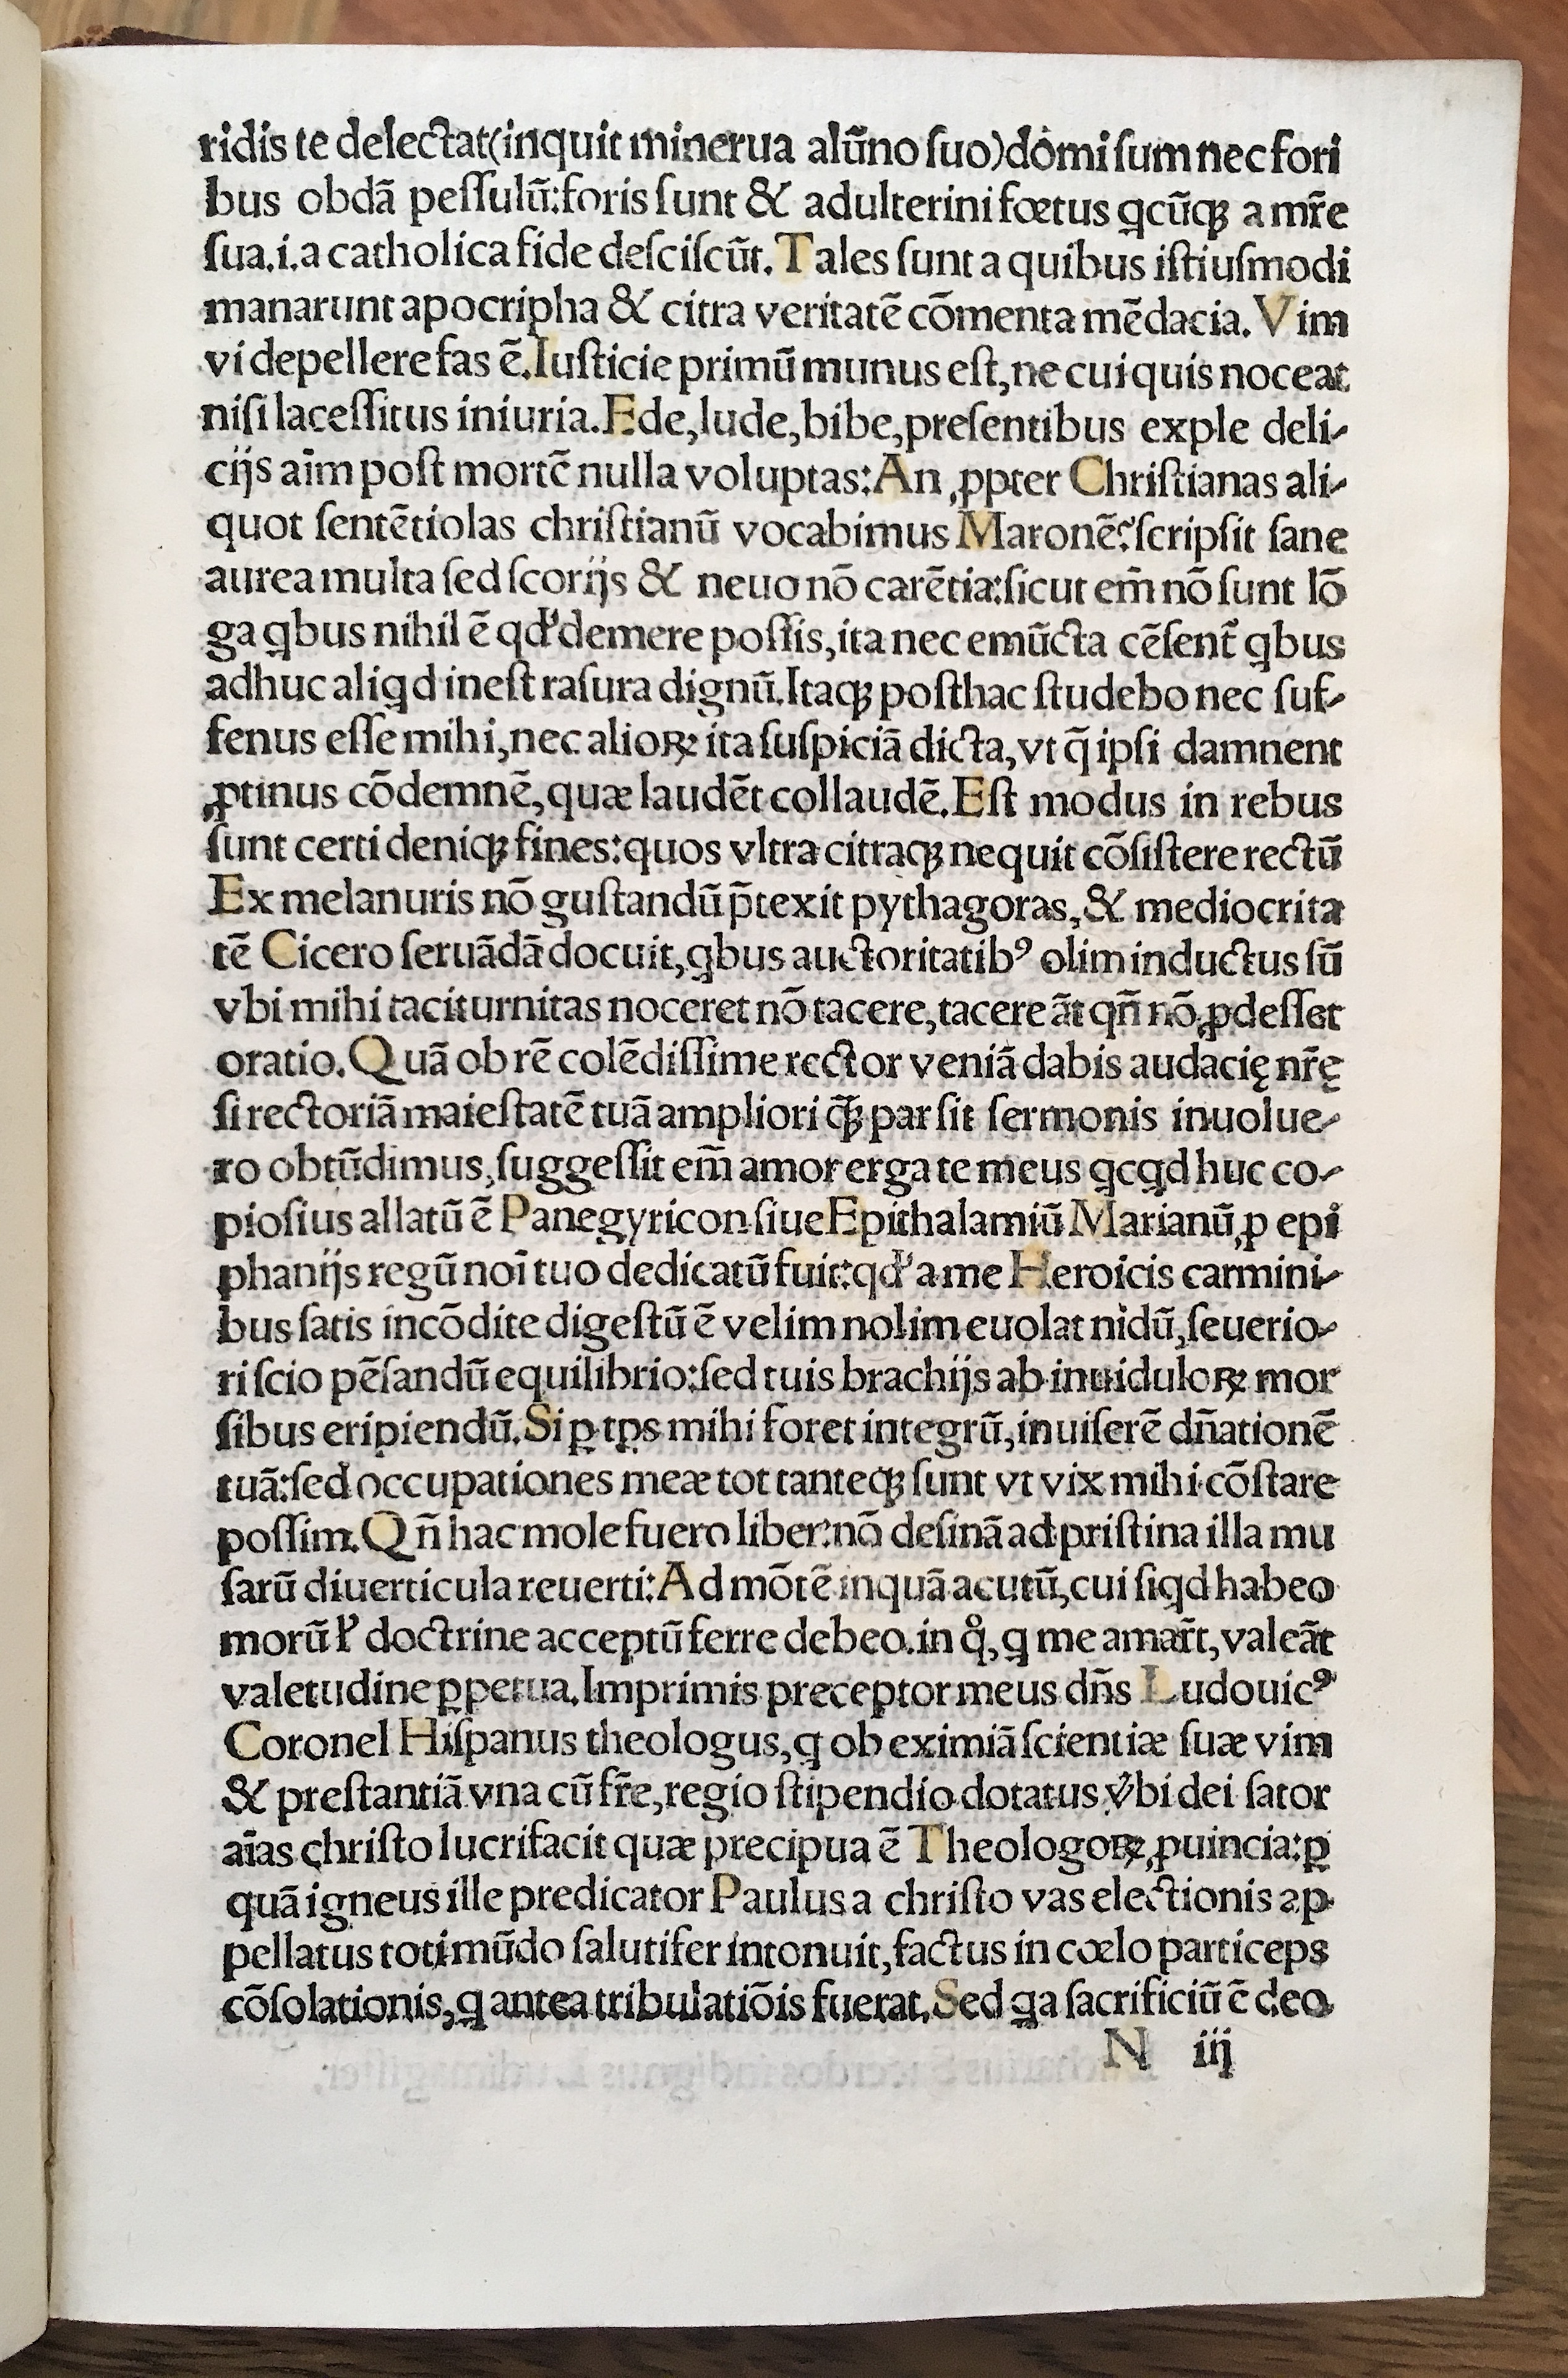 ridis te delectat(inquit minerua alũno ſuo)domi ſum nec fori
bus obdã peſſulũ:foris ſunt & adulterini fœtus ꝗcũqꝫ a mr̃e
ſua.i.a catholica fide deſciſcũt.Tales ſunt a quibus iſtiuſmodi
manarunt apocripha & citra veritatẽ cõmenta mẽdacia.Vim
vi depellere fas ẽ.Iuſticie primũ munus eſt,ne cui quis noceat
niſi laceſſitus iniuria.Ede,lude,bibe,preſentibus exple deli-
cijs aĩm poſt mortẽ nulla voluptas:An ꝓpter Chriſtianas ali-
quot ſentẽtiolas chriſtianũ vocabimus Maronẽ?ſcripſit ſane
aurea multa ſed ſcorijs & neuo nõ carẽtia:ſicut em̃ nõ ſunt lõ
ga ꝗbus nihil ẽ qđ demere poſſis,ita nec emũcta cẽſent̃ ꝗbus
adhuc aliꝗd ineſt raſura dignũ.Itaqꝫ poſthac ſtudebo nec ſuf-
fenus eſſe mihi,nec alioꝝ ita ſuſpiciã dicta,vt q̃ ipſi damnent
ꝓtinus cõdemnẽ,quæ laudẽt collaudẽ.Eſt modus in rebus
ſunt certi deniqꝫ fines:quos vltra citraqꝫ nequit cõſiſtere rectũ
Ex melanuris nõ guſtandũ p̃texit pythagoras,& mediocrita
tẽ Cicero ſeruãdã docuit,ꝗbus auctoritatibꝰ olim inductus ſũ
vbi mihi taciturnitas noceret nõ tacere,tacere ãt qñ nõ ꝓdeſſet
oratio.Quã ob rẽ colẽdiſſime rector veniã dabis audacię nr̃ę
ſi rectoriã maieſtatẽ tuã ampliori q̃ꝫ par ſit ſermonis inuolue-
ro obtũdimus,ſuggeſſit em̃ amor erga te meus ꝗcꝗd huc co-
pioſius allatũ ẽ Panegyricon ſiue Epithalamiũ Marianũ,ꝓ epi
phanijs regũ noĩ tuo dedicatũ fuit:qđ a me Heroicis carmini-
bus ſatis incõdite digeſtũ ẽ velim nolim euolat nidũ,ſeuerio-
ri ſcio pẽſandũ equilibrio:ſed tuis brachijs ab inuiduloꝝ mor
ſibus eripiendũ.Si ꝑ tꝑs mihi foret integrũ,inuiſerẽ dñationẽ
tuã:ſed occupationes meæ tot tanteqꝫ ſunt vt vix mihi cõſtare
poſſim.Qñ hac mole fuero liber:nõ deſinã ad priſtina illa mu
ſarũ diuerticula reuerti:Ad mõtẽ inquã acutũ,cui ſiꝗd habeo
morũ ł doctrine acceptũ ferre debeo.in qͦ,ꝗ me amar̃t,valeãt
valetudine ꝑpetua.Imprimis preceptor meus dñs Ludouicꝰ
Coronel Hiſpanus theologus,ꝗ ob eximiã ſcientiæ ſuæ vim
& preſtantiã vna cũ fr̃e,regio ſtipendio dotatus v̉bi dei ſator
aĩas chriſto lucrifacit quæ precipua ẽ Theologoꝝ ꝓuincia:ꝑ
quã igneus ille predicator Paulus a chriſto vas electionis ap
pellatus toti mũdo ſalutifer intonuit,factus in cœlo particeps
cõſolationis,ꝗ antea tribulatiõis fuerat.Sed ꝗa ſacrificiũ ẽ deo
N iij